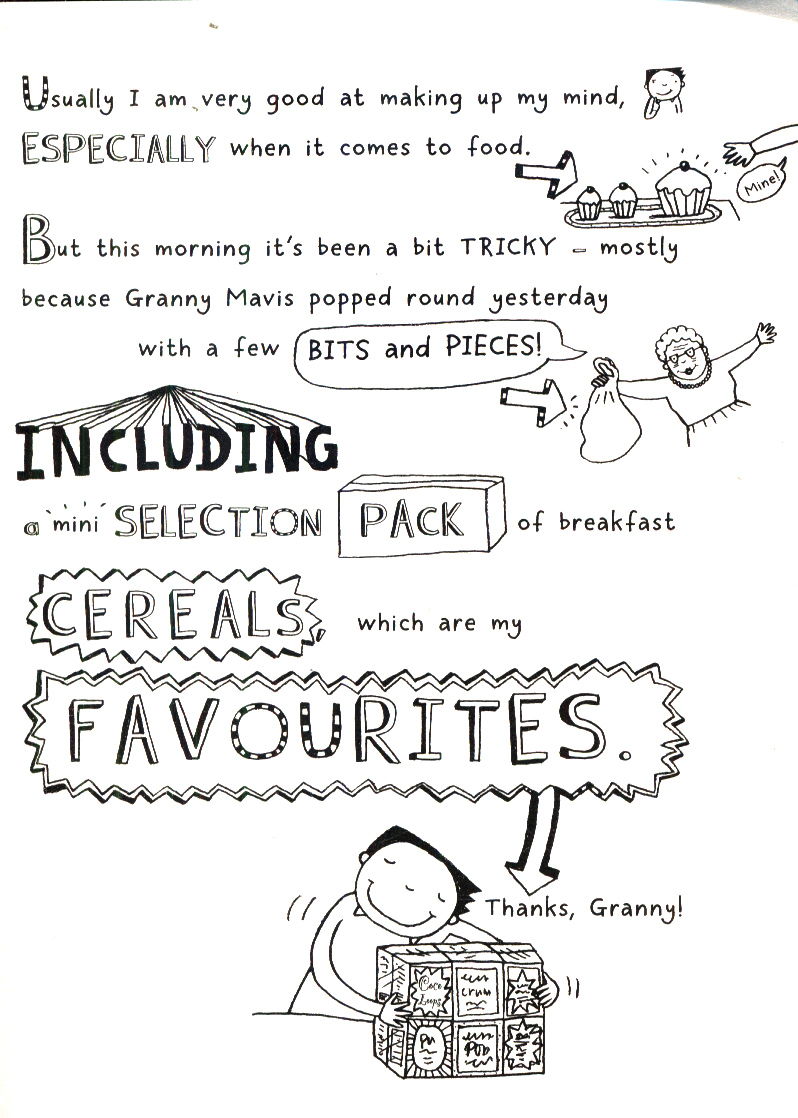 Usually I am very good at making up my mind,
ESPECIALLY when it comes to food.
Mine!
But this morning it's been a bit TRICKY - mostly
because Granny Mavis popped round yesterday
with a few BITS and PIECES!
INCLUDING
a mini SELECTION PACK of breakfast
CEREALS, which are my
FAVOURITES.
Thanks, Granny!
Coco
Loops